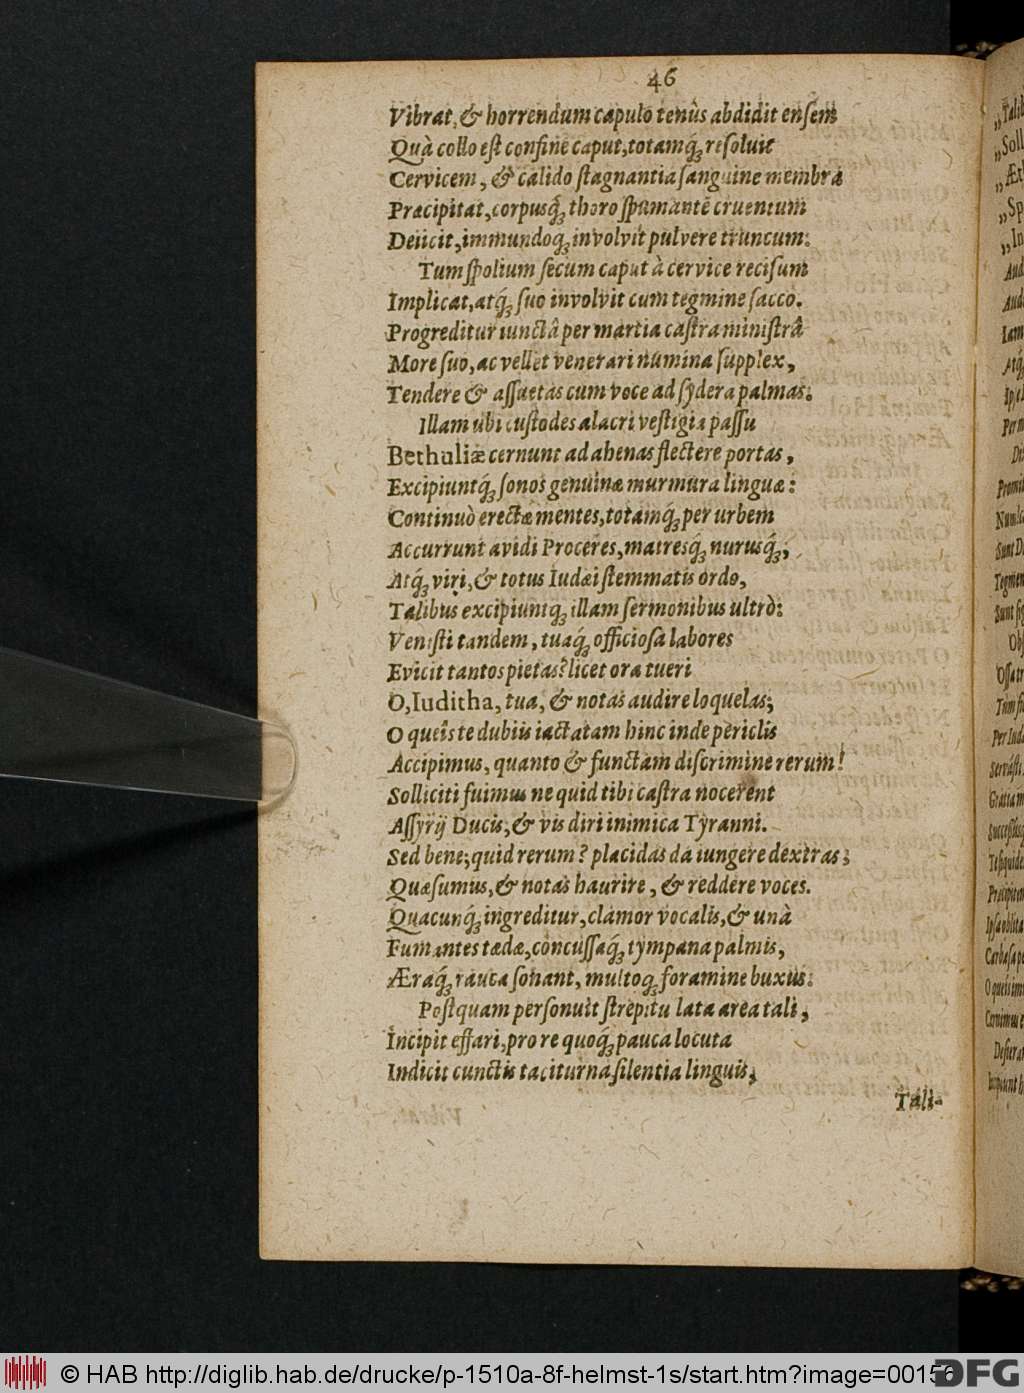 46
Vibrat, & horrendum capulo tenùs abdidit ensem
Quà collo est confine caput, totamq́; resoluit
Cervicem, & calido stagnantia sanguine membra
Præcipitat, corpusq́; thoro spumantē cruentum
Deiicit, immundoq; involvit pulvere truncum:
Tum spolium secum caput à cervice recisum
Implicat, atq́; suo involvit cum tegmine sacco.
Progreditur iunctâ per martia castra ministrâ
More suo, ac vellet venerari numina supplex,
Tendere & assuetas cum voce ad sydera palmas:
Illam ubi custodes alacri vestigia passu
Bethuliæ cernunt ad ahenas flectere portas,
Excipiuntq́; sonos genuinæ murmura linguæ:
Continuò erectæ mentes, totamq́; per urbem
Accurrunt avidi Proceres, matresq́; nurusq́;,
Atq́; viri, & totus Iudæi stemmatis ordo,
Talibus excipiuntq; illam sermonibus ultrò:
Venisti tandem, tuaq́; officiosa labores
Evicit tantos pietas? licet ora tueri
O, Iuditha, tua, & notas audire loquelas;
O queis te dubiis iactatam hinc inde periclis
Accipimus, quanto & functam discrimine rerum!
Solliciti fuimus ne quid tibi castra nocerent
Assyrij Ducis, & vis diri inimica Tyranni.
Sed bene; quid rerum? placidas da iungere dextras;
Quæsumus, & notas haurire, & reddere voces.
Quacunq́; ingreditur, clamor vocalis, & unà
Fumantes tædæ, concussaq́; tympana palmis,
Æraq́; rauca sonant, multoq; foramine buxus:
Postquam personuit strepitu lata area tali,
Incipit effari, pro re quoq́; pauca locuta
Indicit cunctis taciturna silentia linguis,
Tali-
© HAB http://diglib.hab.de/drucke/p-1510a-8f-helmst-1s/start.htm?image=00156
DFG